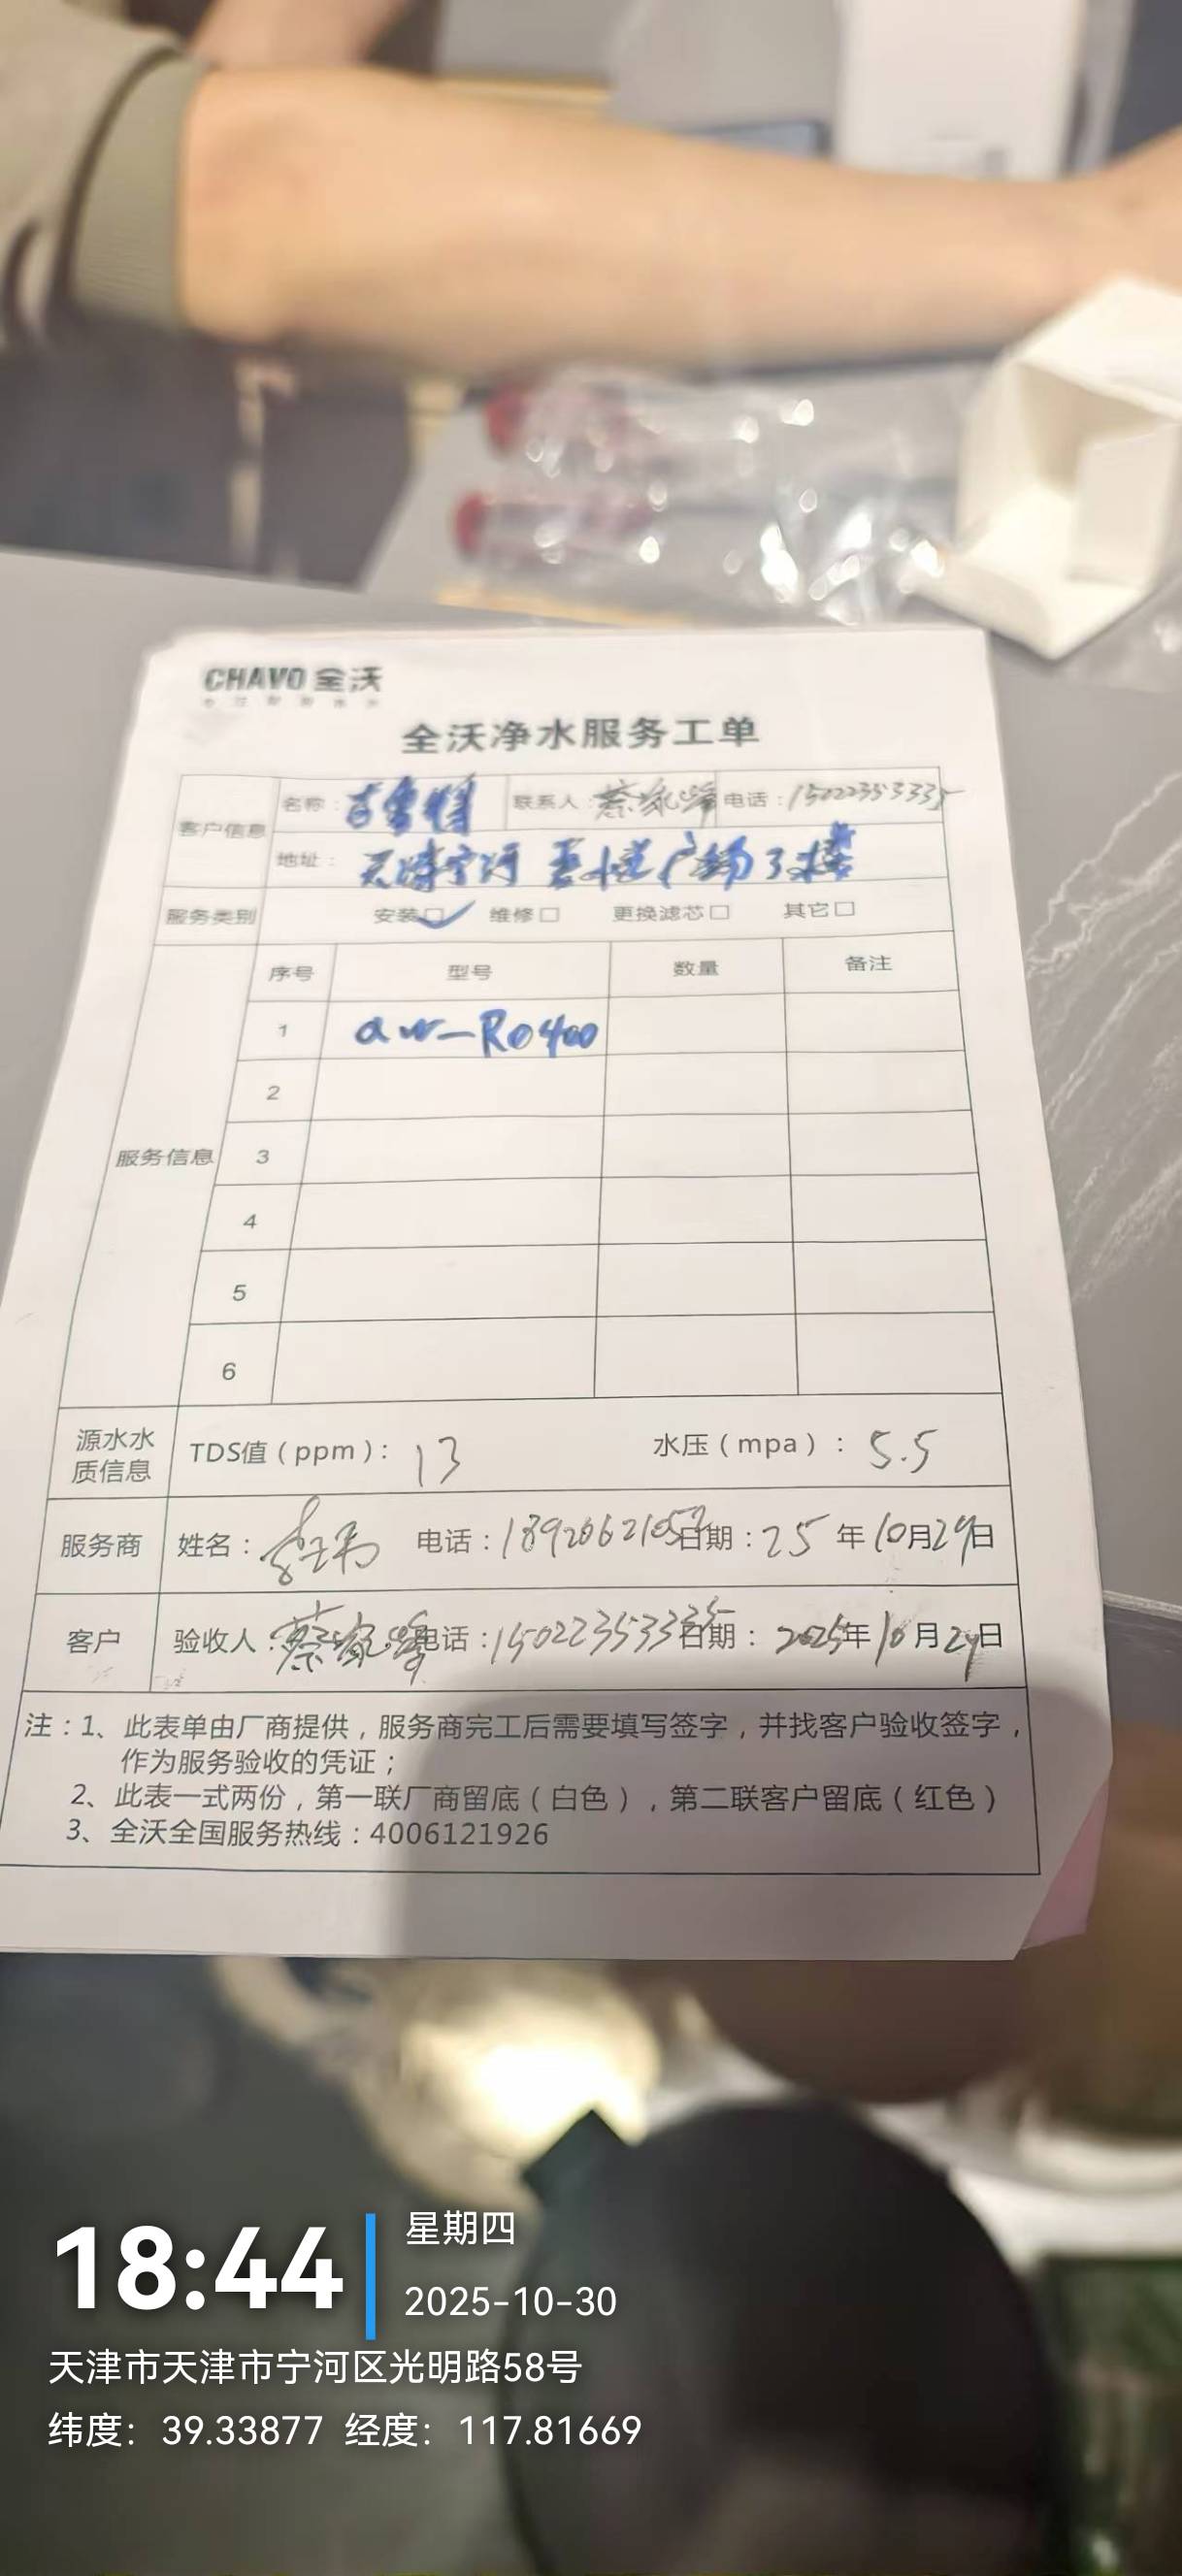 CHAVO 全沃
全沃净水服务工单
客户信息
名称： 联系人：蔡家峰 电话：15022353335
地址： 天津宁河 吾悦广场3楼
服务类别 安装☑ 维修□ 更换滤芯□ 其它□
服务信息
序号 型号 数量 备注
1 aw-RO400
2
3
4
5
6
源水水质信息 TDS值（ppm）：13 水压（mpa）：5.5
服务商 姓名： 电话： 日期：25年10月29日
客户 验收人：蔡家峰 电话：15022353335 日期：2025年10月29日
注：1、此表单由厂商提供，服务商完工后需要填写签字，并找客户验收签字，
作为服务验收的凭证；
2、此表一式两份，第一联厂商留底（白色），第二联客户留底（红色）
3、全沃全国服务热线：4006121926
18:44
星期四
2025-10-30
天津市天津市宁河区光明路58号
纬度：39.33877 经度：117.81669